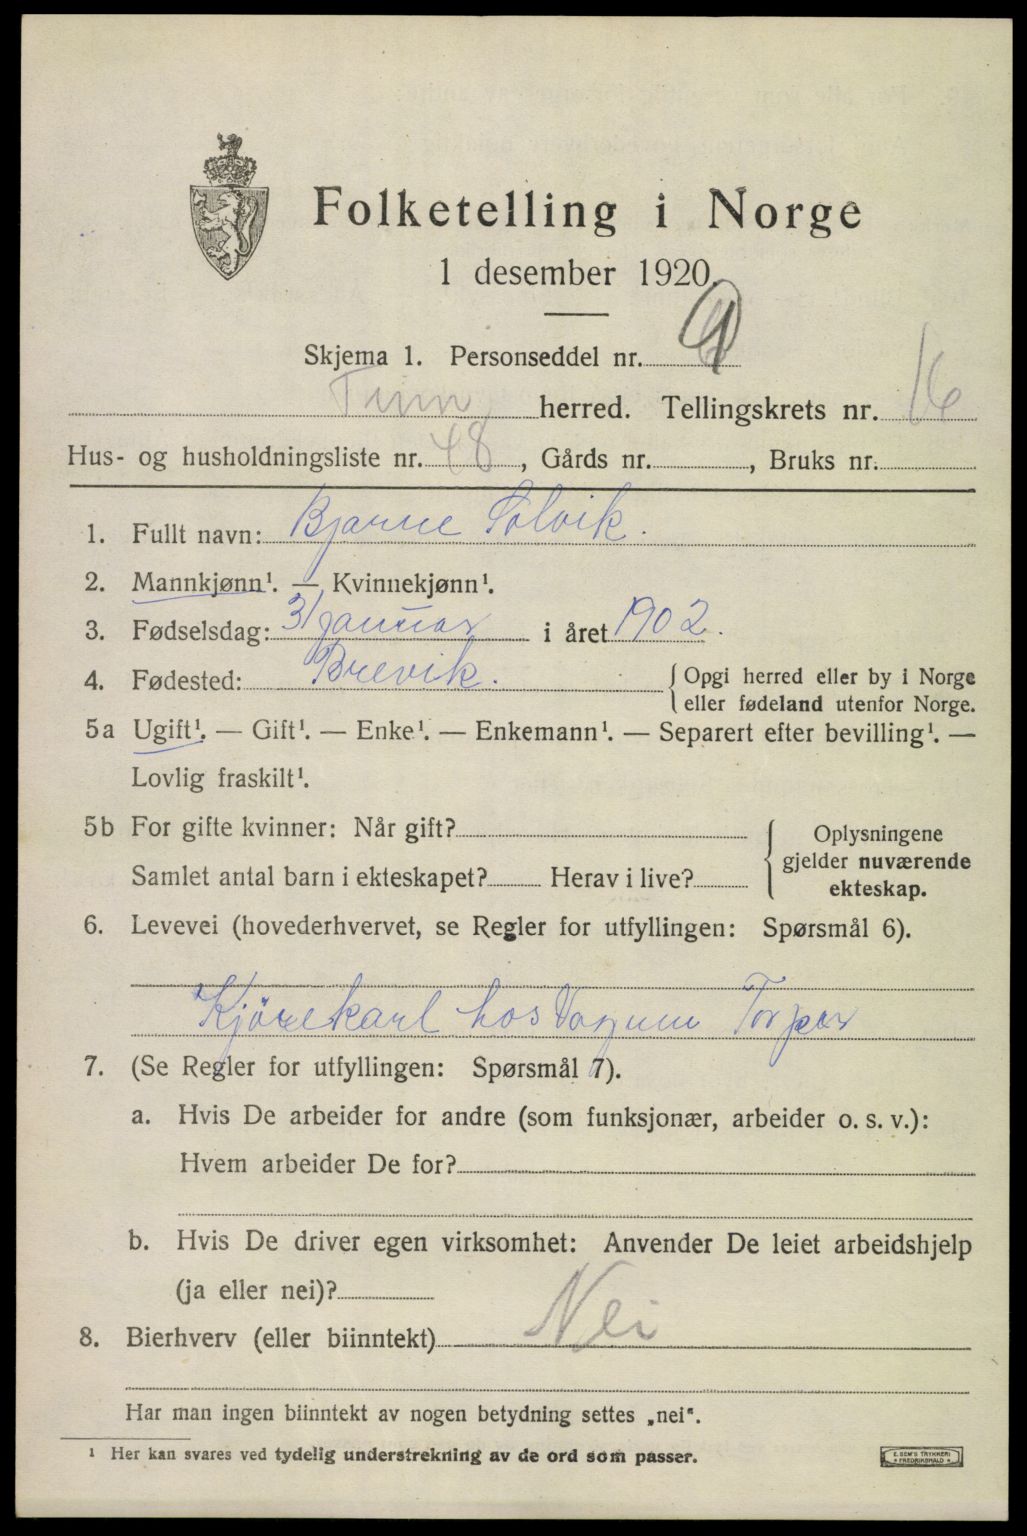 Folketelling i Norge
1 desember 1920.
Skjema 1. Personseddel nr. 9
Tinn herred. Tellingskrets nr. 16
Hus- og husholdningsliste nr. 48, Gårds nr. , Bruks nr.
1. Fullt navn: Bjarne Solvik.
2. Mannkjønn¹. — Kvinnekjønn¹.
3. Fødselsdag: 31 januar i året 1902.
4. Fødested: Brevik. { Opgi herred eller by i Norge
eller fødeland utenfor Norge.
5a Ugift¹. — Gift¹. — Enke¹. — Enkemann¹. — Separert efter bevilling¹. —
Lovlig fraskilt¹.
5b For gifte kvinner: Når gift?
Samlet antal barn i ekteskapet? Herav i live?
{ Oplysningene
gjelder nuværende
ekteskap.
6. Levevei (hovederhvervet, se Regler for utfyllingen: Spørsmål 6).
Kjörekarl hos Torper
7. (Se Regler for utfyllingen: Spørsmål 7).
a. Hvis De arbeider for andre (som funksjonær, arbeider o. s. v.):
Hvem arbeider De for?
b. Hvis De driver egen virksomhet: Anvender De leiet arbeidshjelp
(ja eller nei)?
8. Bierhverv (eller biinntekt) Nei
Har man ingen biinntekt av nogen betydning settes „nei".
¹ Her kan svares ved tydelig understrekning av de ord som passer.
E. SEM'S TRYKKERI
FREDRIKSHALD